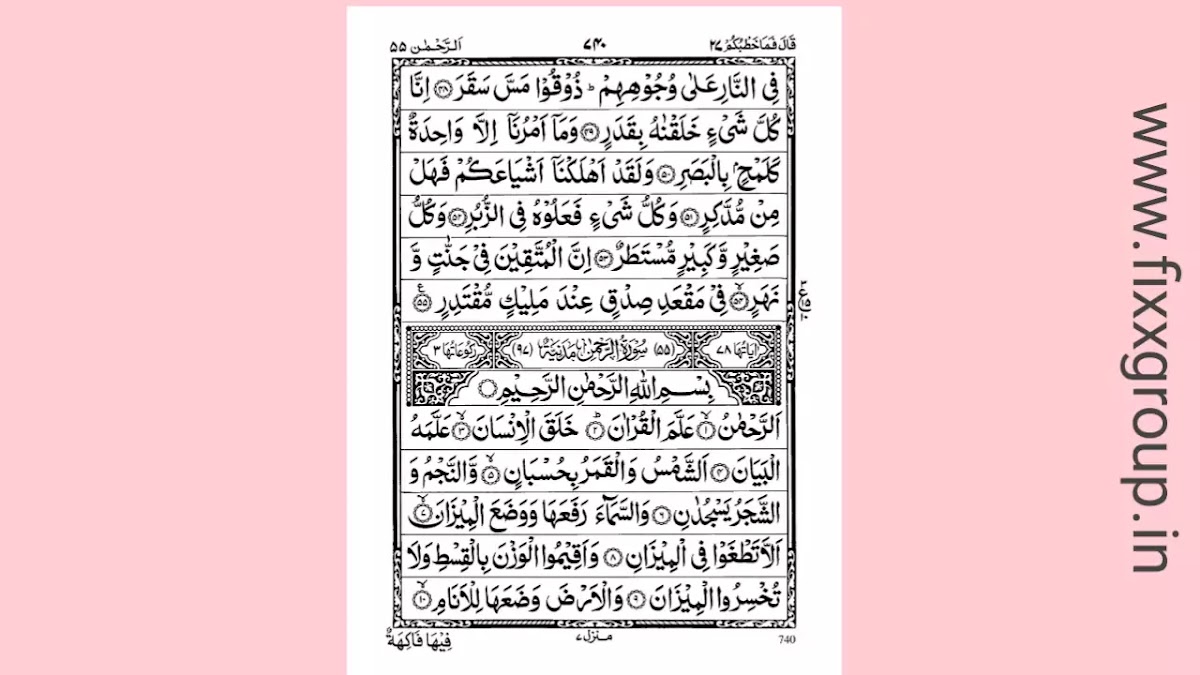 قَالَ فَمَا خَطْبُكُمْ ٢٧
٧٤٠
اَلرَّحْمٰن ٥٥
فِی النَّارِ عَلٰی وُجُوْهِهِمْ ؕ ذُوْقُوْا مَسَّ سَقَرَ ﴿۴۸﴾ اِنَّا
كُلَّ شَیْءٍ خَلَقْنٰهُ بِقَدَرٍ ﴿۴۹﴾ وَمَاۤ اَمْرُنَاۤ اِلَّا وَاحِدَةٌ
كَلَمْحٍۭ بِالْبَصَرِ ﴿۵۰﴾ وَلَقَدْ اَهْلَكْنَاۤ اَشْیَاعَكُمْ فَهَلْ
مِنْ مُّدَّكِرٍ ﴿۵۱﴾ وَكُلُّ شَیْءٍ فَعَلُوْهُ فِی الزُّبُرِ ﴿۵۲﴾ وَكُلُّ
صَغِیْرٍ وَّكَبِیْرٍ مُّسْتَطَرٌ ﴿۵۳﴾ اِنَّ الْمُتَّقِیْنَ فِیْ جَنّٰتٍ وَّ
نَهَرٍ ﴿۵۴﴾ فِیْ مَقْعَدِ صِدْقٍ عِنْدَ مَلِیْكٍ مُّقْتَدِرٍ ﴿۵۵﴾
اٰیَاتُهَا ٧٨ (٥٥) سُوْرَةُ الرَّحْمٰنِ مَدَنِیَّةٌ (٩٧) رُكُوْعَاتُهَا ٣
بِسْمِ اللّٰهِ الرَّحْمٰنِ الرَّحِیْمِ
اَلرَّحْمٰنُ ﴿۱﴾ عَلَّمَ الْقُرْاٰنَ ﴿۲﴾ خَلَقَ الْاِنْسَانَ ﴿۳﴾ عَلَّمَهُ
الْبَیَانَ ﴿۴﴾ اَلشَّمْسُ وَالْقَمَرُ بِحُسْبَانٍ ﴿۵﴾ وَّالنَّجْمُ وَ
الشَّجَرُ یَسْجُدٰنِ ﴿۶﴾ وَالسَّمَآءَ رَفَعَهَا وَوَضَعَ الْمِیْزَانَ ﴿۷﴾
اَلَّا تَطْغَوْا فِی الْمِیْزَانِ ﴿۸﴾ وَاَقِیْمُوا الْوَزْنَ بِالْقِسْطِ وَلَا
تُخْسِرُوا الْمِیْزَانَ ﴿۹﴾ وَالْاَرْضَ وَضَعَهَا لِلْاَنَامِ ﴿۱۰﴾
740
منزل ٧
فِیْهَا فَاكِهَةٌ
www.fixxgroup.in